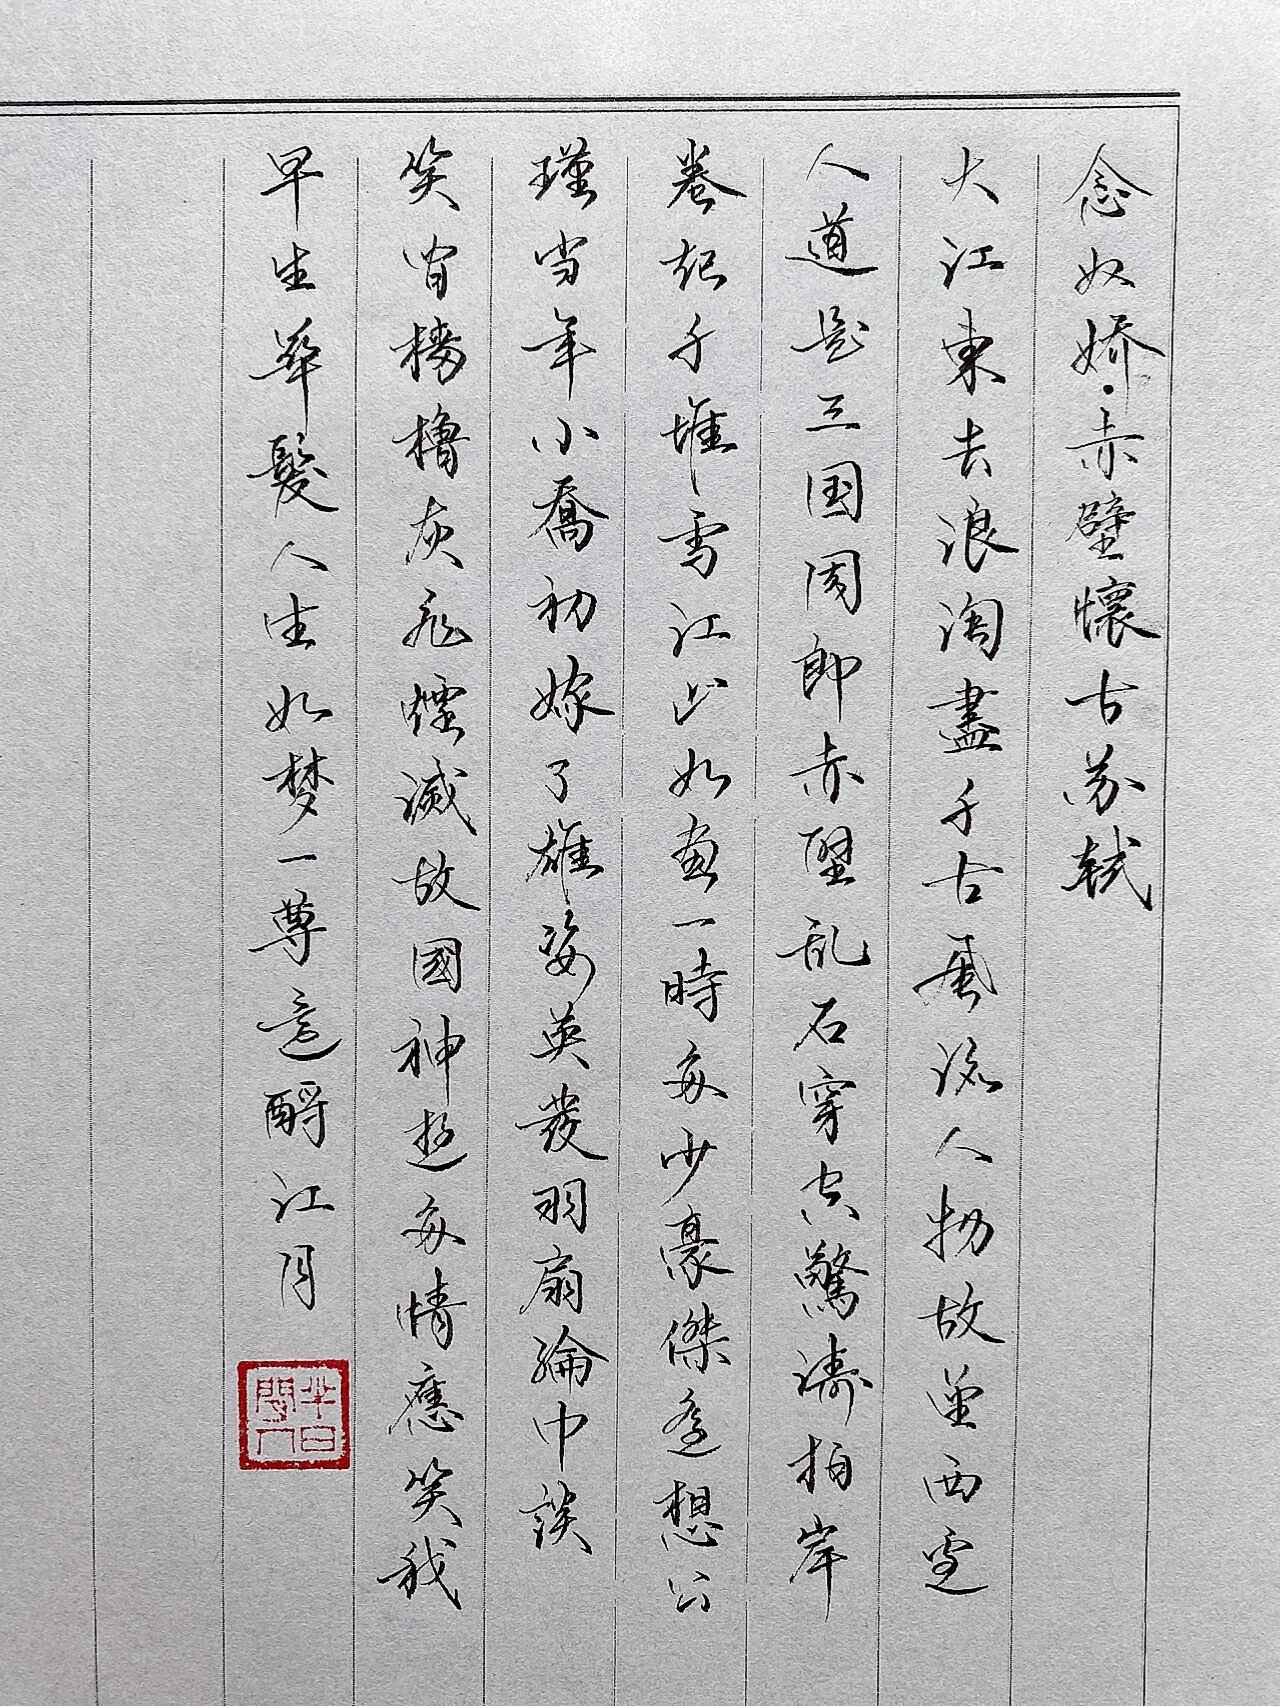 念奴娇·赤壁懷古苏轼
大江東去浪淘盡千古風流人物故垒西邊
人道是三国周郎赤壁乱石穿空驚濤拍岸
卷起千堆雪江山如畫一時多少豪傑遥想公
瑾当年小喬初嫁了雄姿英發羽扇綸巾談
笑间檣櫓灰飛煙滅故國神遊多情應笑我
早生華髮人生如梦一尊還酹江月